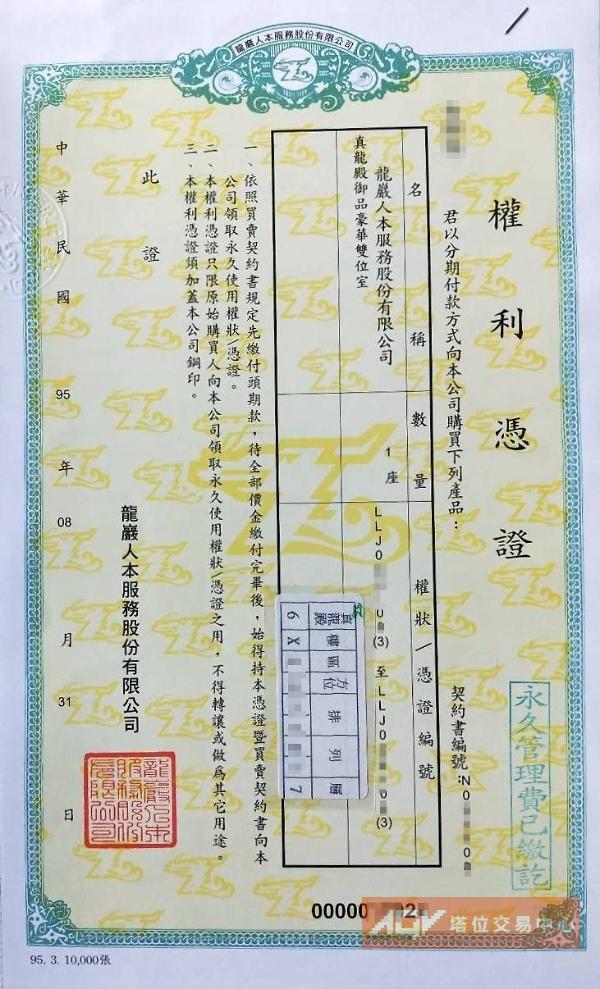 龍巖人本服務股份有限公司
權利憑證
君以分期付款方式向本公司購買下列產品：
契約書編號：N0
永久管理費已繳訖
名稱
數量
權狀／憑證編號
龍巖人本服務股份有限公司
1座
LLJ0 (3) 至 LLJ0 (3)
真龍殿御品豪華雙位室
真龍殿 樓 區 方位 排 列 層
6 X 7
一、依照買賣契約書規定先繳付頭期款，待全部價金繳付完畢後，始得持本憑證暨買賣契約書向本
公司領取永久使用權狀／憑證。
二、本權利憑證只限原始購買人向本公司領取永久使用權狀／憑證之用，不得轉讓或做為其它用途。
三、本權利憑證須加蓋本公司鋼印。
此證
龍巖人本服務股份有限公司
中華民國 95 年 08 月 31 日
00000
塔位交易中心
95. 3. 10,000張